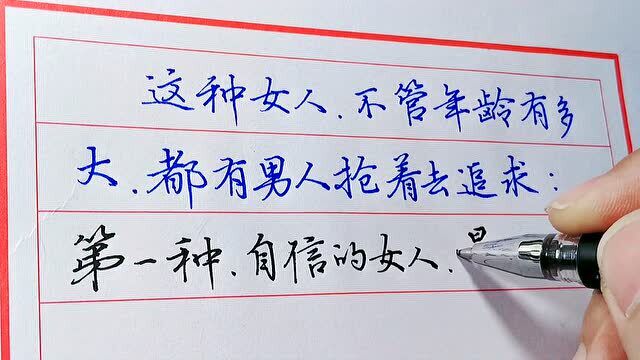 这种女人,不管年龄有多
大,都有男人抢着去追求:
第一种,自信的女人,